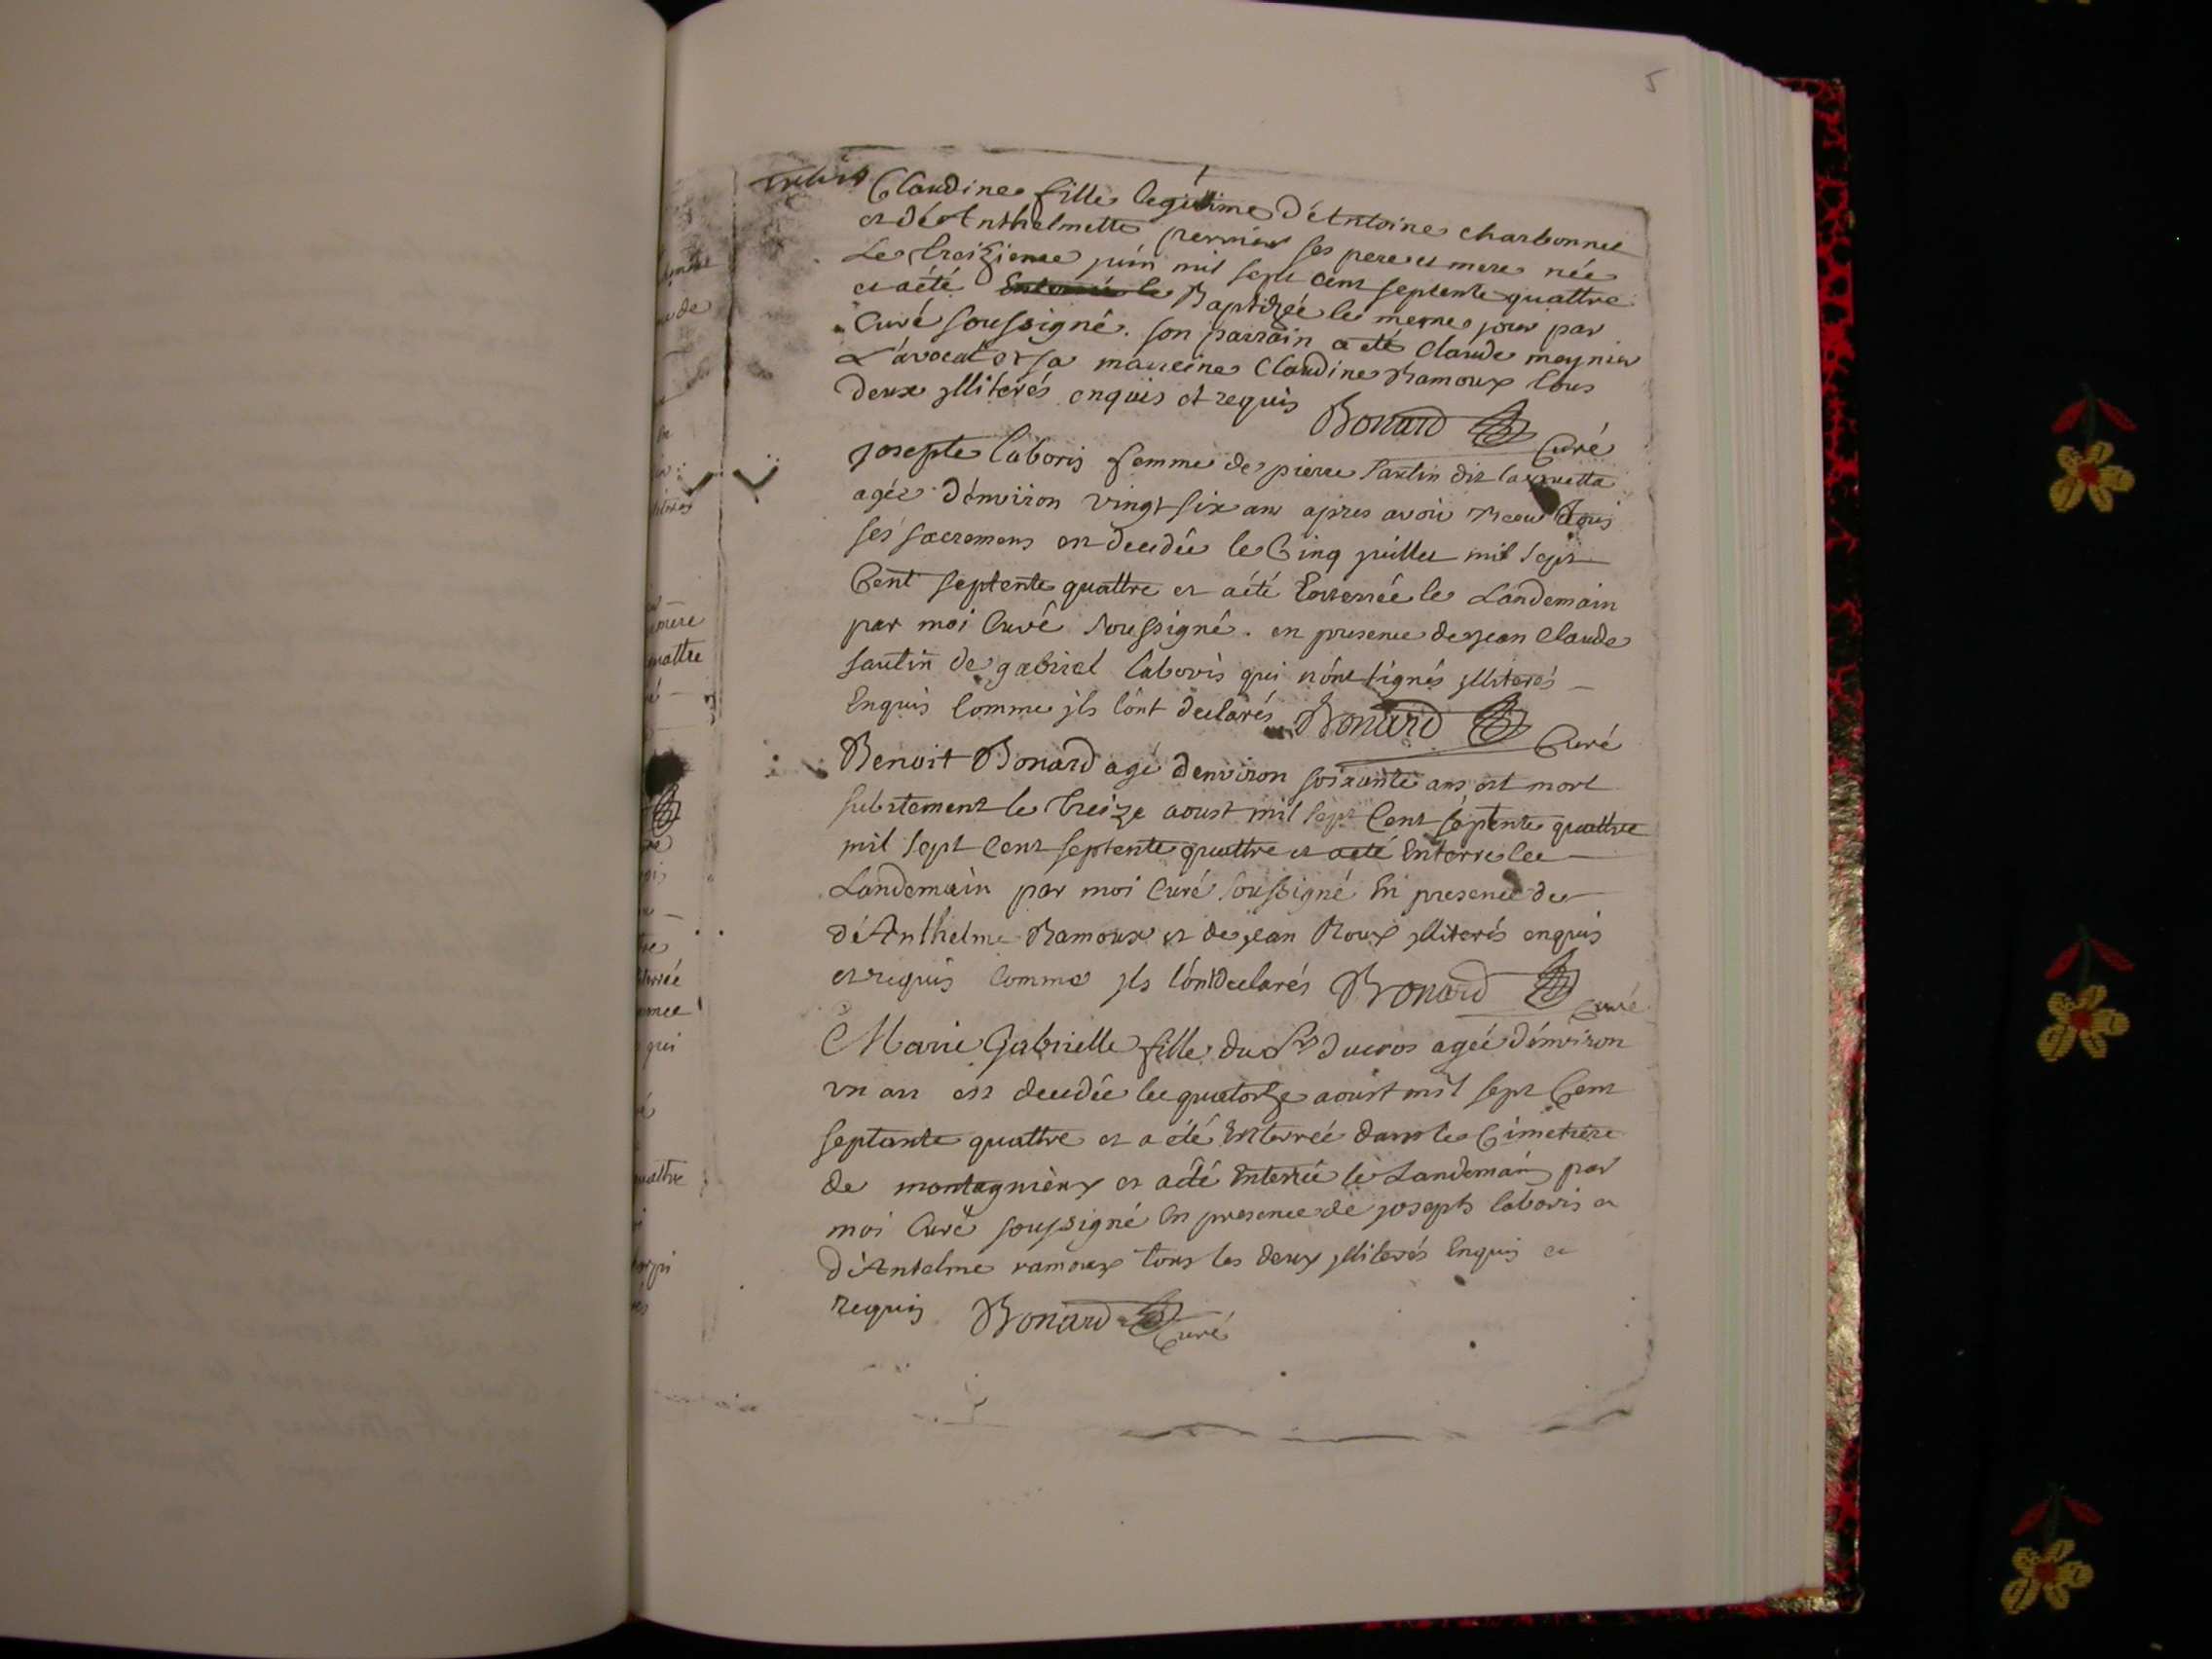 5
Claudine fille legitime d'Antoine charbonnet
et d'Anthelmette perrier ses pere et mere née
Le treizieme juin mil sept cent septente quattre
et a été Baptizée le meme jour par
Curé soussigné. son parrain a été Claude meynier
L'avocat et sa marreine Claudine Ramoux tous
deux jlliterés enquis et requis Bonard Curé
josepte laboris femme de pierre sautin dit
agée d'environ vingt six ans apres avoir receu tous
ses sacremens est decedée le Cinq juillet mil sept
Cent septente quattre et a été Enterrée le Landemain
par moi Curé soussigné. en presence de jean Claude
sautin de gabriel laboris qui n'ont signés jlliterés
Enquis Comme jls l'ont declarés Bonard Curé
Benoit Bonard agé d'environ soixante ans est mort
subitement le treize aoust mil sept Cent septente quattre
mil sept Cent septente quattre et a eté Enterré le
Landemain par moi Curé soussigné En presence de
d'Anthelme Ramoux et de jean Roux jlliterés enquis
et requis Comme jls l'ont declarés Bonard Curé
Marie Gabrielle fille du Sr ducros agée d'environ
un an est decedée le quatorze aoust mil sept Cent
septante quattre et a été Enterrée dans le Cimetiere
de montagnieux et a été Enterrée le Landemain par
moi Curé soussigné En presence de joseph laboris et
d'Antelme ramoux tous les deux jlliterés Enquis et
requis Bonard Curé